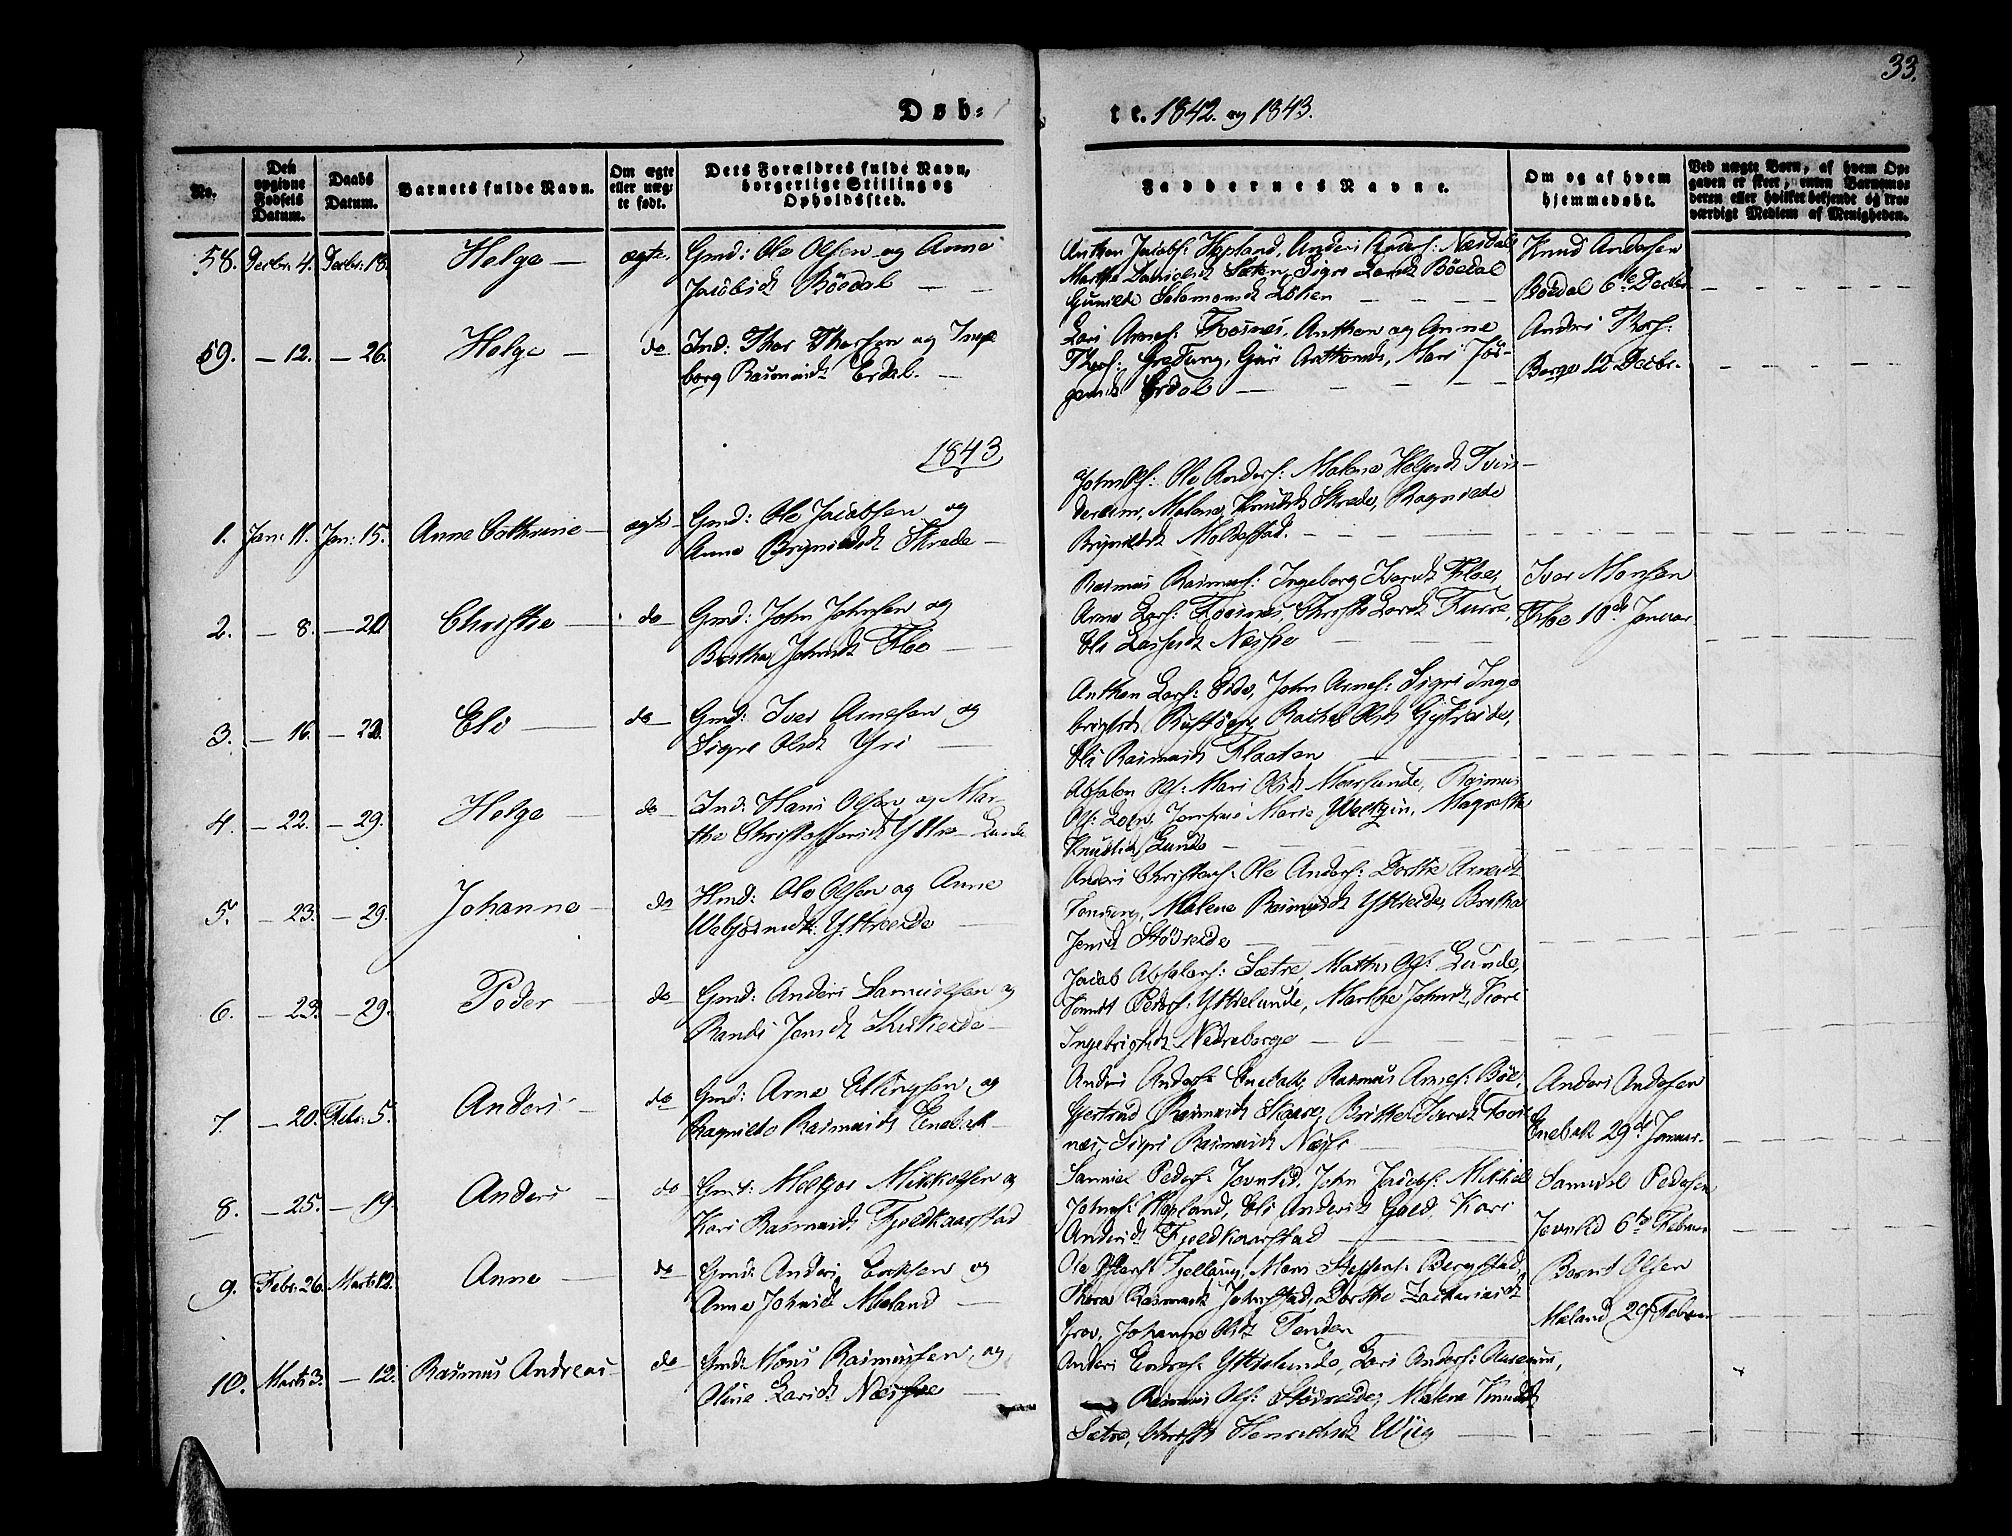 33.
Døb-
te. 1842. og 1843.
No.
Den opgivne Fødsels Datum.
Daabs Datum.
Barnets fulde Navn.
Om ægte eller uægte født.
Dets Forældres fulde Navn, borgerlige Stilling og Opholdssted.
Faddernes Navne.
Om og af hvem hjemmedøbt.
Ved uægte Børn, af hvem Opgaven er skeet, enten Barnemoderen eller hvilket bekjendt og troværdigt Medlem af Menigheden.
58. Decbr: 4. Decbr: 18. Helge — ægte. Gmd: Ole Olsen og Anne
Jacobsdt Böedal
Anthon Jacobs: Hopland, Anders Anders: Næsdal
Marthe Danielsdt Sæten, Sigri Larsdt Böedal
Gunilde Salomonsdt Löken
Knud Andersen
Böedal 6te Decbr
59. — 12. — 26. Helge — do Ind: Thor Thorsen og Inge
borg Rasmusdt Erdal.
Lars Arnes: Fosnes, Anthon og Anne
Thors: Gretung, Guri Anthonsdt, Mari Jör-
gensdt Erdal
Anders Thors:
Berge 12 Decbr.
1843
1. Jan: 11. Jan: 15. Anne Cathrine — ægte Gmd: Ole Jacobsen og
Anne Brynildsdt Skrede
John Ols: Ole Anders: Malene Helgesdt Tvin-
dereim, Malene Knudsdt Skrede, Ragnilde
Brynildsdt Moldestad.
2. — 8. — 22. Christie — do Gmd: John Johnsen og
Berthe Johnsdt Floe
Rasmus Rasmus: Ingeborg Ivarsdt Floe,
Arne Lars: Fosnes, Christi Larsdt
Eli Larsdt Nesje
Iver Monsen
Floe 10de Januar
3. — 16. — 22. Eli — do Gmd: Iver Arnesen og
Sigri Olsdt Yri
Anthon Lars: Eide, John Arnes: Sigri Inge
brigtsdt Rustöen, Rachel Olsdt Gytreide,
Eli Rasmusdt Flaaten
4. — 22. — 29. Helge — do Ind: Hans Olsen og Mar-
the Christophersdt Yttre-Lunde
Absalon Ols: Mari Olsdt Marsunde, Rasmus
Ols: Loen, Jomfrue Marie Magrethe
Knudsdt Lunde
5. — 23. — 29. Johanne — do Hmd: Ole Olsen og Anne
Webjörnsdt: Yttreeide
Anders Christens: Ole Anders: Dorthe Arnesdt
Malene Rasmusdt Yttreeide, Brethe
Jensdt Störeide
6. — 23. — 29. Peder — do Gmd: Anders Samuelsen og
Randi Jensdt Kirkeeide
Jacob Absalons: Sætre, Mathis Ols: Lunde,
Knudt Peders: Yttrelunde, Marthe Johnsdt, Kari
Ingebrigtsdt Nedreberge
7. — 20. Febr: 5. Anders — do Gmd: Arne Ellingsen og
Ragnilde Rasmusdt Enebak
Anders Anders: Enebak, Rasmus Arnes: Böe,
Gertrud Rasmusdt Skaare, Brithe Iversdt Fos-
næs, Sigri Rasmusdt Næsje
Anders Andersen
Enebak 29de Januar.
8. — 25. — 19. Anders — do Gmd: Melgor Mikkelsen og
Kari Rasmusdt Fjeldkaarstad
Samuel Peders: John Jacobs: Mikkel
Johnes: Hopland, Eli Andersdt Gald, Kari
Andersdt Fjeldkaarstad
Samuel Pedersen
6te Februar
9. Febr: 26. Marts 12. Anne — do Gmd: Anders Eriksen og
Anne Johnsdt Mæland
Ole Fjellaug, Mons Steffens: Bergstad,
Thora Rasmusdt Johnstad, Dorthe Zachariasdt
Grov, Johanne Olsdt Tenden
Bernt Olsen
Mæland 29 Februar
10. Marts 3. — 12. Rasmus Andreas — do Gmd: Mons Rasmussen og
Oline Larsdt Næsje
Anders Endres: Yttrelunde, Lars Anders:
Rasmus Ols: Störeide, Malene Knudsdt
Sætre, Christi Henriksdt Wiig